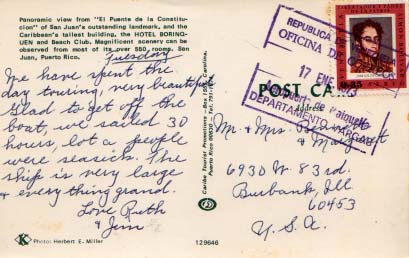 Panoramic view from "El Puente de la Constitu-
cion" of San Juan's outstanding landmark, and the
Caribbean's tallest building, the HOTEL BORIN-
QUEN and Beach Club. Magnificent scenery can be
observed from most of its over 550 rooms. San
Juan, Puerto Rico.
Tuesday
We have spent the
day touring, very beautiful
Glad to get off the
boat, we sailed 30
hours, lot a people
were seasick. The
ship is very large
& everything grand.
Love Ruth
& Jim
K Photo: Herbert E. Miller
129646
Caribe Tourist Promotions
REPUBLICA
OFICINA DE
17 ENE
DEPARTAMENTO VARGAS
POST CARD
Address
Mr. & Mrs. Bernard
& Margaret
6930 W. 83rd.
Burbank, Ill
60453
U.S.A.